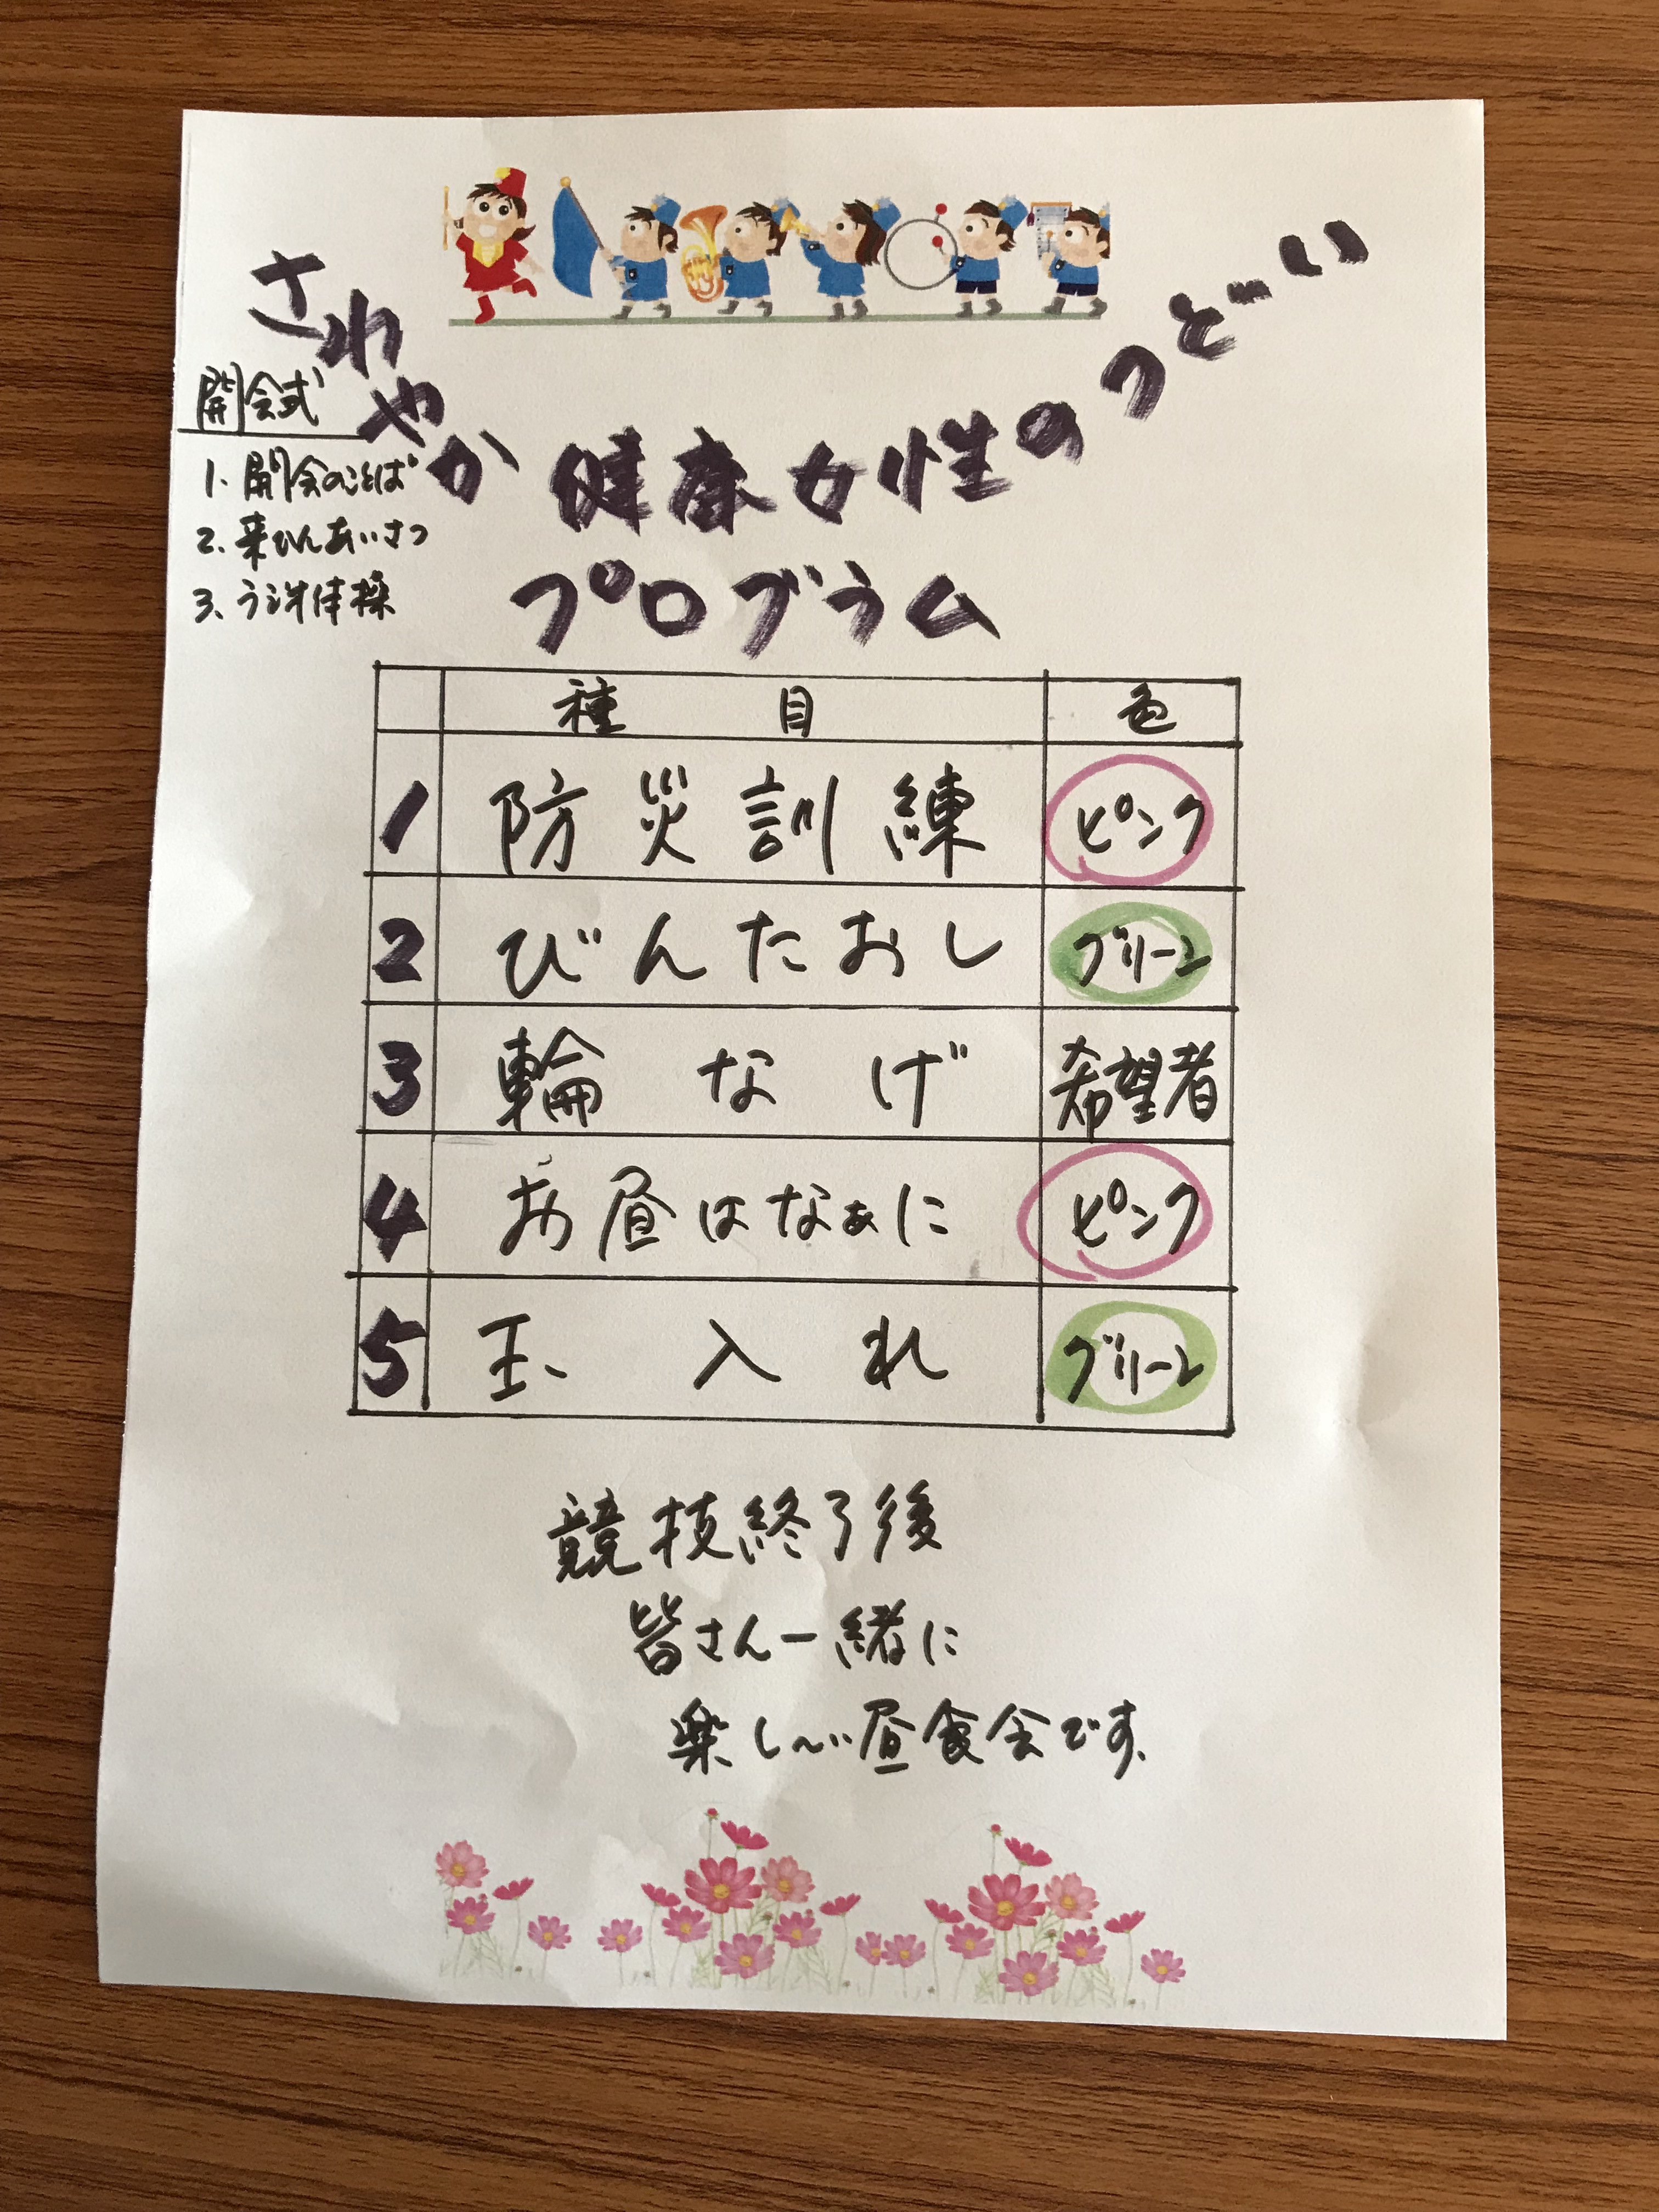 さわやか健康女性のつどい
プログラム
開会式
1. 開会のことば
2. 来ひんあいさつ
3. ラジオ体操
種目 色
1 防災訓練 ピンク
2 びんたおし グリーン
3 輪なげ 希望者
4 お昼はなぁに ピンク
5 玉入れ グリーン
競技終了後
皆さん一緒に
楽し〜い昼食会です。